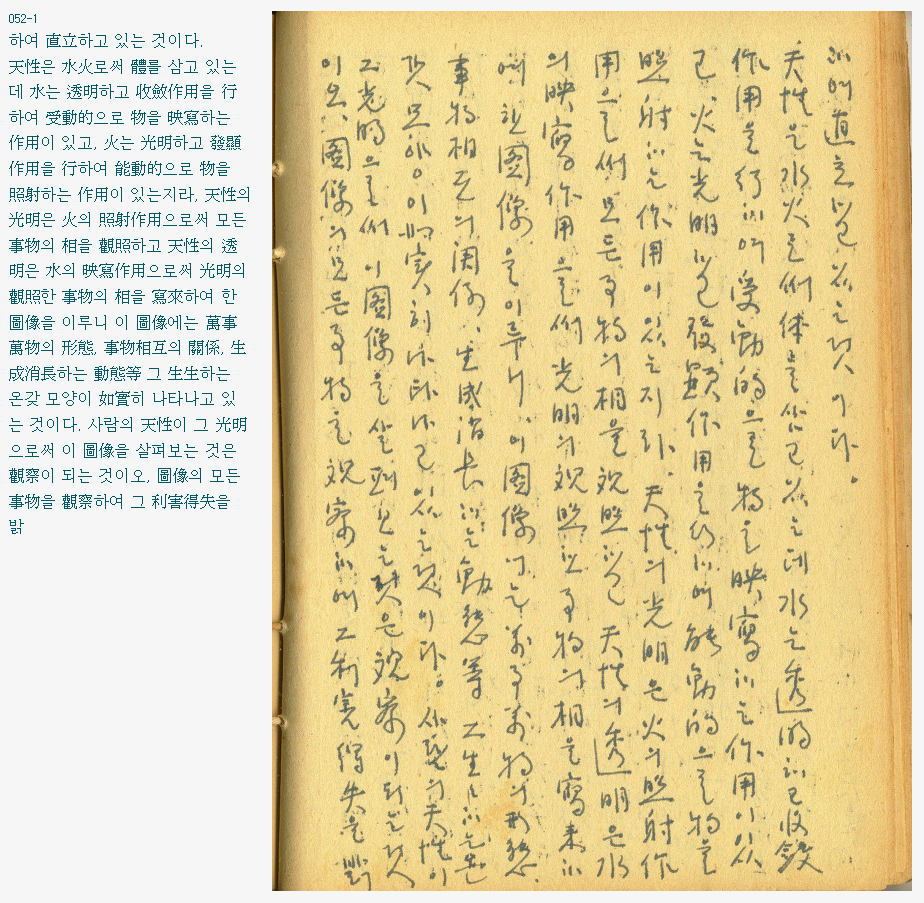 052-1
하여 直立하고 있는 것이다.
天性은 水火로써 體를 삼고 있는
데 水는 透明하고 收斂作用을 行
하여 受動的으로 物을 映寫하는
作用이 있고, 火는 光明하고 發顯
作用을 行하여 能動的으로 物을
照射하는 作用이 있는지라, 天性의
光明은 火의 照射作用으로써 모든
事物의 相을 觀照하고 天性의 透
明은 水의 映寫作用으로써 光明의
觀照한 事物의 相을 寫來하여 한
圖像을 이루니 이 圖像에는 萬事
萬物의 形態, 事物相互의 關係, 生
成消長하는 動態等 그 生生하는
온갖 모양이 如實히 나타나고 있
는 것이다. 사람의 天性이 그 光明
으로써 이 圖像을 살펴보는 것은
觀察이 되는 것이오, 圖像의 모든
事物을 觀察하여 그 利害得失을
밝
하여 直立하고 있는 것이다.
天性은 水火로써 体를 삼고 있는데 水는 透明하고 收斂
作用을 行하여 受動的으로 物을 映寫하는 作用이 있
고, 火는 光明하고 發顯作用을 行하여 能動的으로 物을
照射하는 作用이 있는지라, 天性의 光明은 火의 照射作
用으로써 모든 事物의 相을 觀照하고 天性의 透明은 水
의 映寫作用으로써 光明의 觀照한 事物의 相을 寫來하
여 한 圖像을 이루니 이 圖像에는 萬事萬物의 形態,
事物相互의 関係, 生成消長하는 動態等 그 生生하는 온
갖 모양이 如實히 나타나고 있는 것이다. 사람의 天性이
그 光明으로써 이 圖像을 살펴보는 것은 觀察이 되는 것
이오, 圖像의 모든 事物을 觀察하여 그 利害得失을 밝